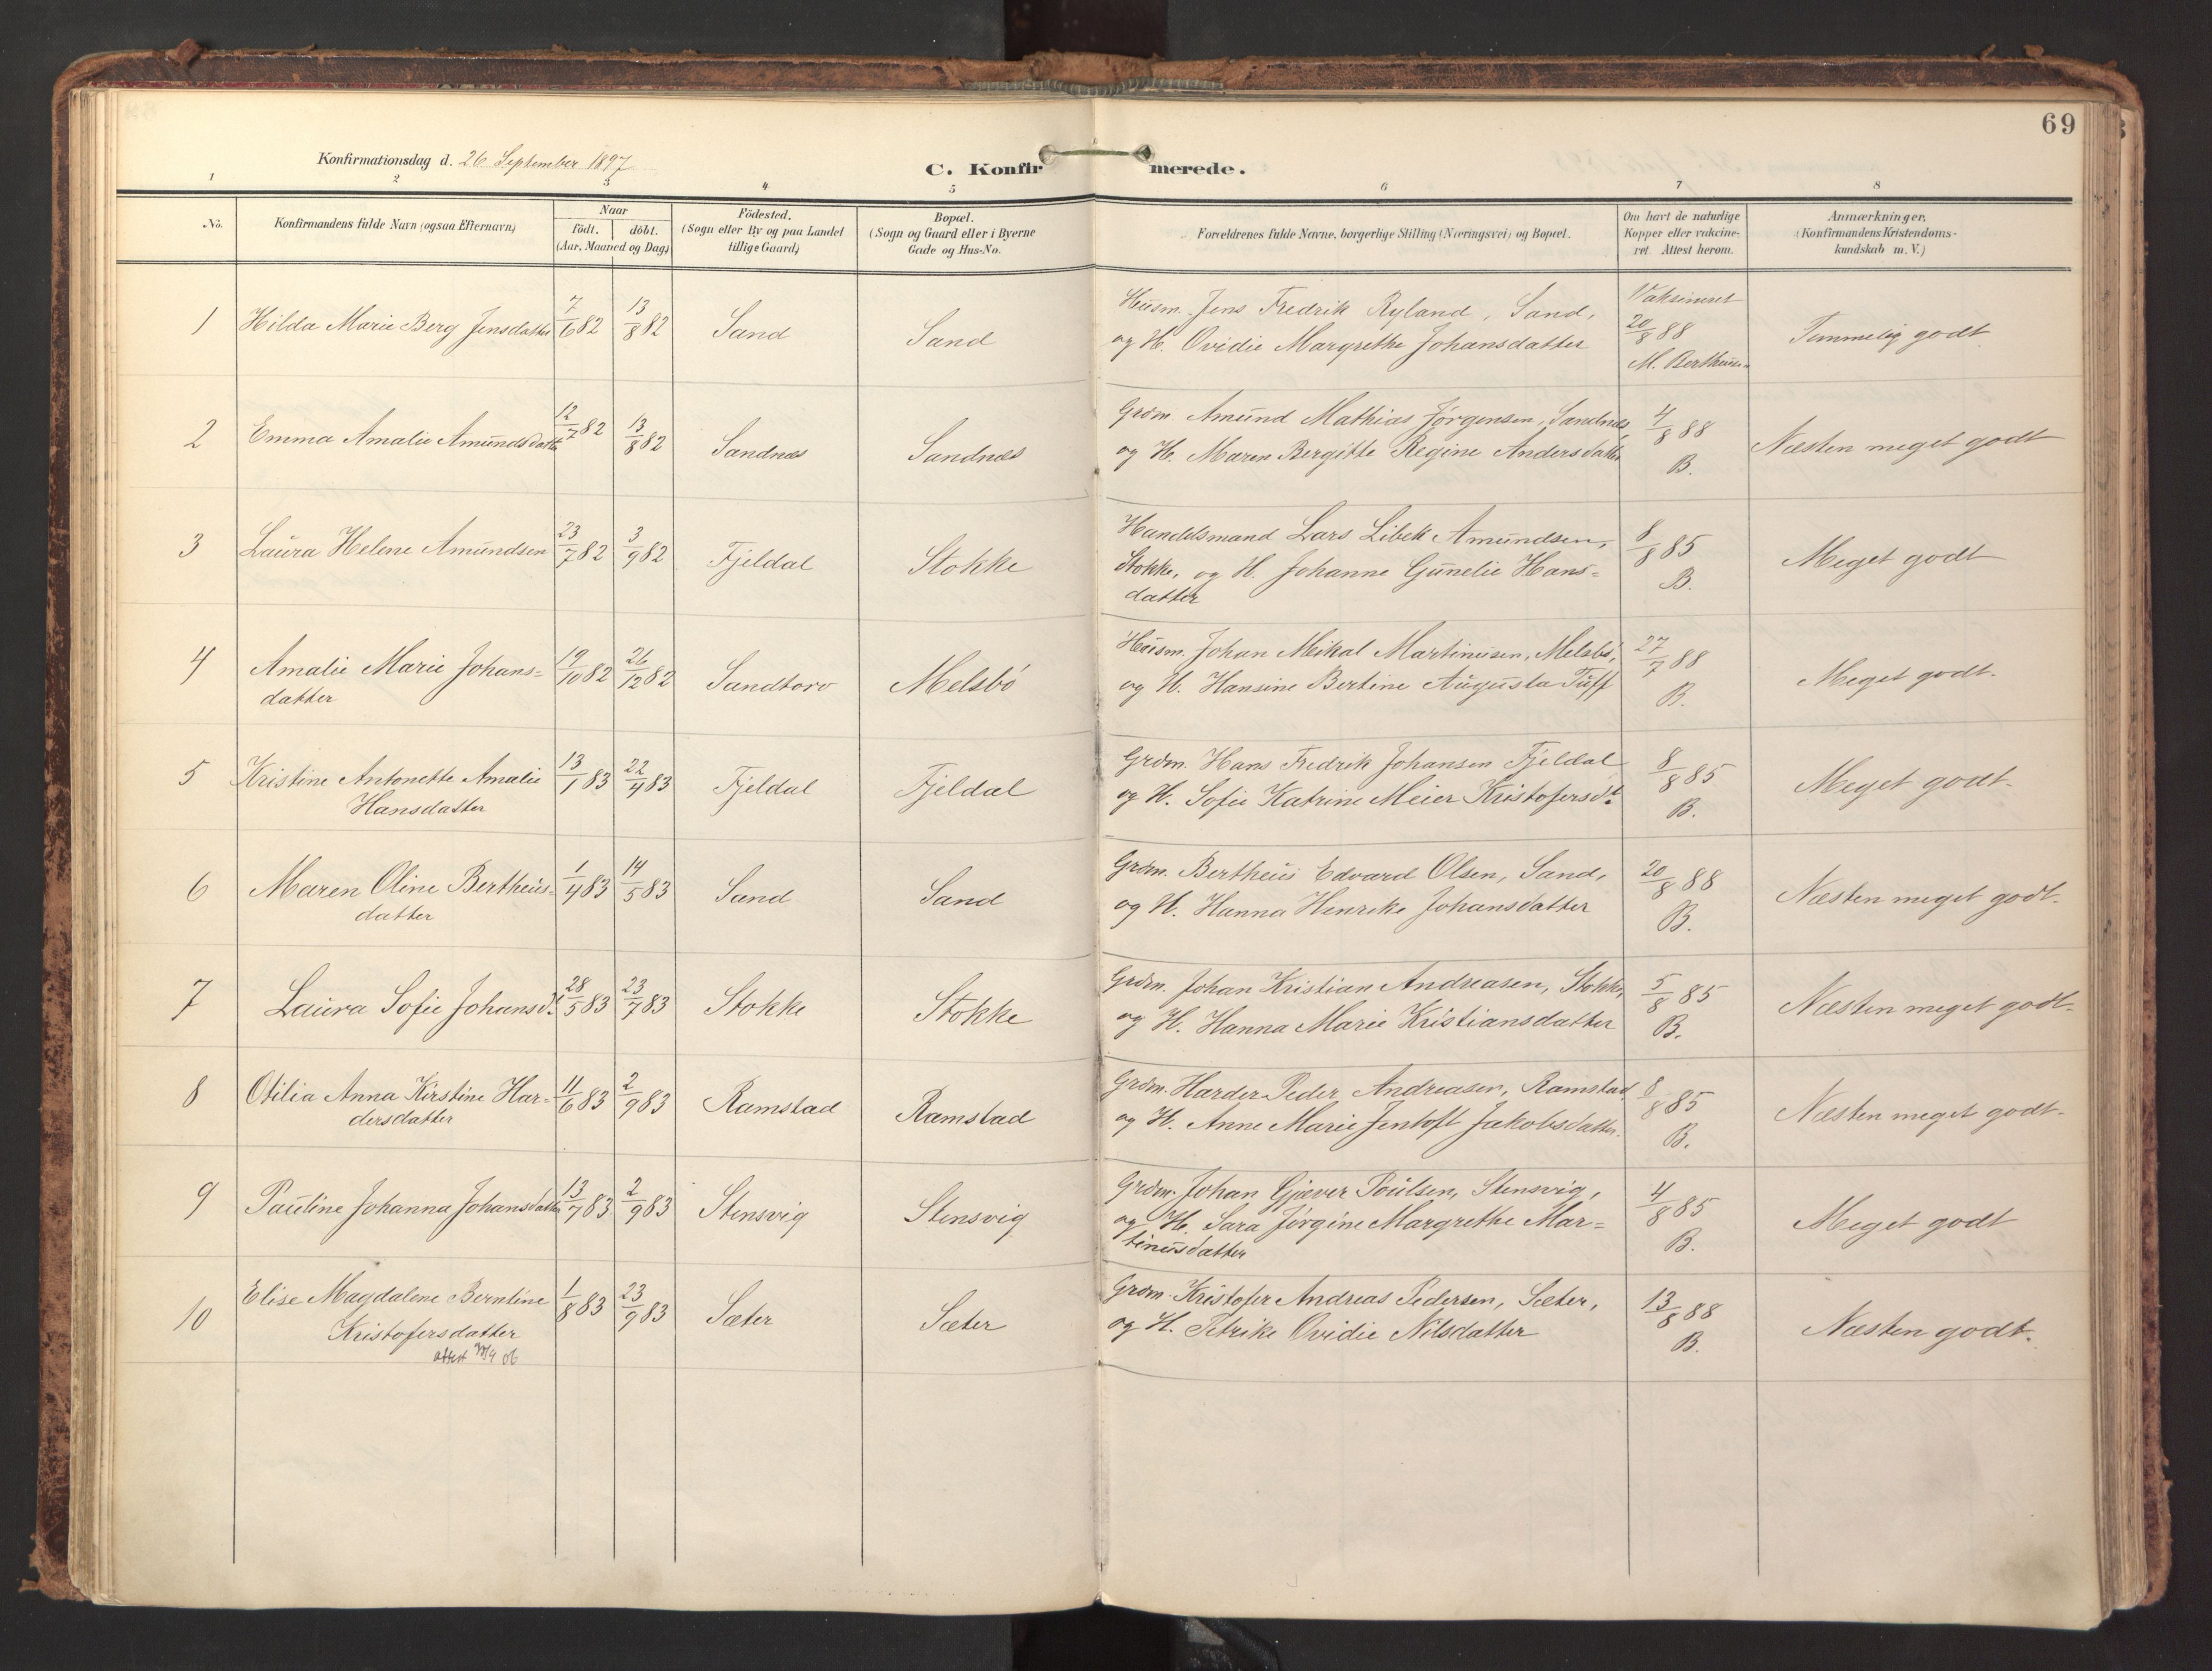 69
Konfirmationsdag d. 26 September 1897
C. Konfirmerede.
1 2 3 4 5 6 7 8
No. Konfirmandens fulde Navn (ogsaa Efternavn) Naar födt. döbt. (Aar, Maaned og Dag) Födested. (Sogn eller By og paa Landet tillige Gaard) Bopæl. (Sogn og Gaard eller i Byerne Gade og Hus-No. Forældrenes fulde Navne, borgerlige Stilling (Næringsvei) og Bopæl. Om havt de naturlige Kopper eller vakcineret. Attest herom. Anmærkninger. (Konfirmandens Kristendomskundskab m. V.)
1 Hilda Marie Berg Jensdatter 7/6 82 13/8 82 Sand Sand Husm. Jens Fredrik Ryland, Sand, Vaksineret
og H. Ovidie Margrethe Johansdatter 20/8 88 Temmelig godt
M. Bertheus-
2 Emma Amalie Amundsdatter 12/7 82 13/8 82 Sandnæs Sandnæs Grdm. Amund Mathias Jørgensen, Sandnæs, 4/8 88 Næsten meget godt
og H. Maren Bergitte Regine Andersdatter B.
3 Laura Helene Amundsen 23/7 82 3/9 82 Fjeldal Stokke Handelsmand Lars Libek Amundsen, 8/8 85 Meget godt
Stokke, og H. Johanne Gunelie Hans- B.
datter
4 Amalie Marie Johans- 19/10 82 26/12 82 Sandtorv Melsbö Husm. Johan Mikal Martinusen, Melsbö, 27/7 88 Meget godt.
datter og H. Hansine Bertine Augusta Tuff B.
5 Kristine Antonette Amalie 13/1 83 22/4 83 Fjeldal Fjeldal Grdm. Hans Fredrik Johansen Fjeldal 8/8 85 Meget godt.
Hansdatter og H. Sofie Katrine Meier Kristofersdt. B.
6 Maren Oline Bertheus- 1/4 83 14/5 83 Sand Sand Grdm. Bertheus Edvard Olsen, Sand, 20/8 88 Næsten meget godt.
datter og H. Hanna Henrike Johansdatter B.
7 Laura Sofie Johansdt. 28/5 83 23/7 83 Stokke Stokke Grdm. Johan Kristian Andreasen, Stokke, 5/8 85 Næsten meget godt.
og H. Hanna Marie Kristiansdatter B.
8 Otilia Anna Kirstine Har- 11/6 83 2/9 83 Ramstad Ramstad Grdm. Harder Peder Andreasen, Ramstad 8/8 85 Næsten meget godt.
dersdatter og H. Anne Marie Jentoft Jakobsdatter. B.
9 Pauline Johanna Johansdatter 13/7 83 2/9 83 Stensvig Stensvig Grdm. Johan Gjæver Poulsen, Stensvig, 4/8 85 Meget godt
og H. Sara Jørgine Margrethe Mar- B.
tinusdatter
10 Elise Magdalene Berntine 1/8 83 23/9 83 Sæter Sæter Grdm. Kristofer Andreas Pedersen, Sæter, 13/8 88 Næsten godt.
Kristofersdatter og H. Petrike Ovidie Nilsdatter B.
attest